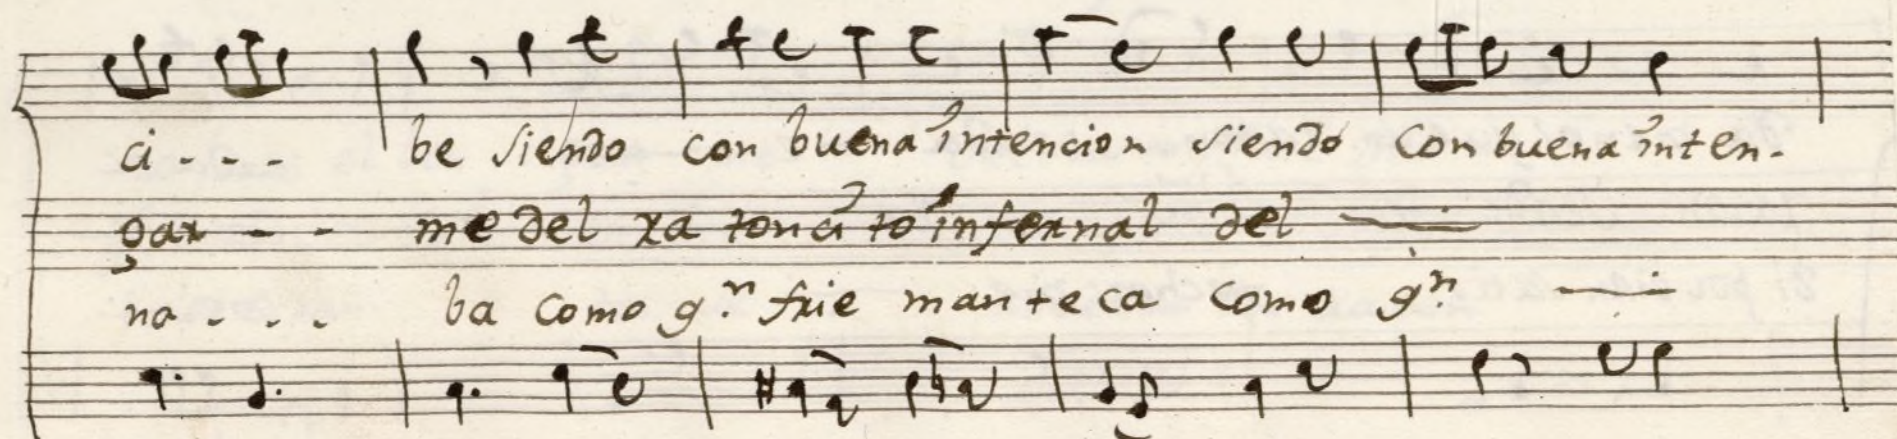 ci - - - be siendo con buena intencion siendo con buena inten-
gar - - me del ratoncito infernal del
na - - - ba como gn. frie manteca como gn.